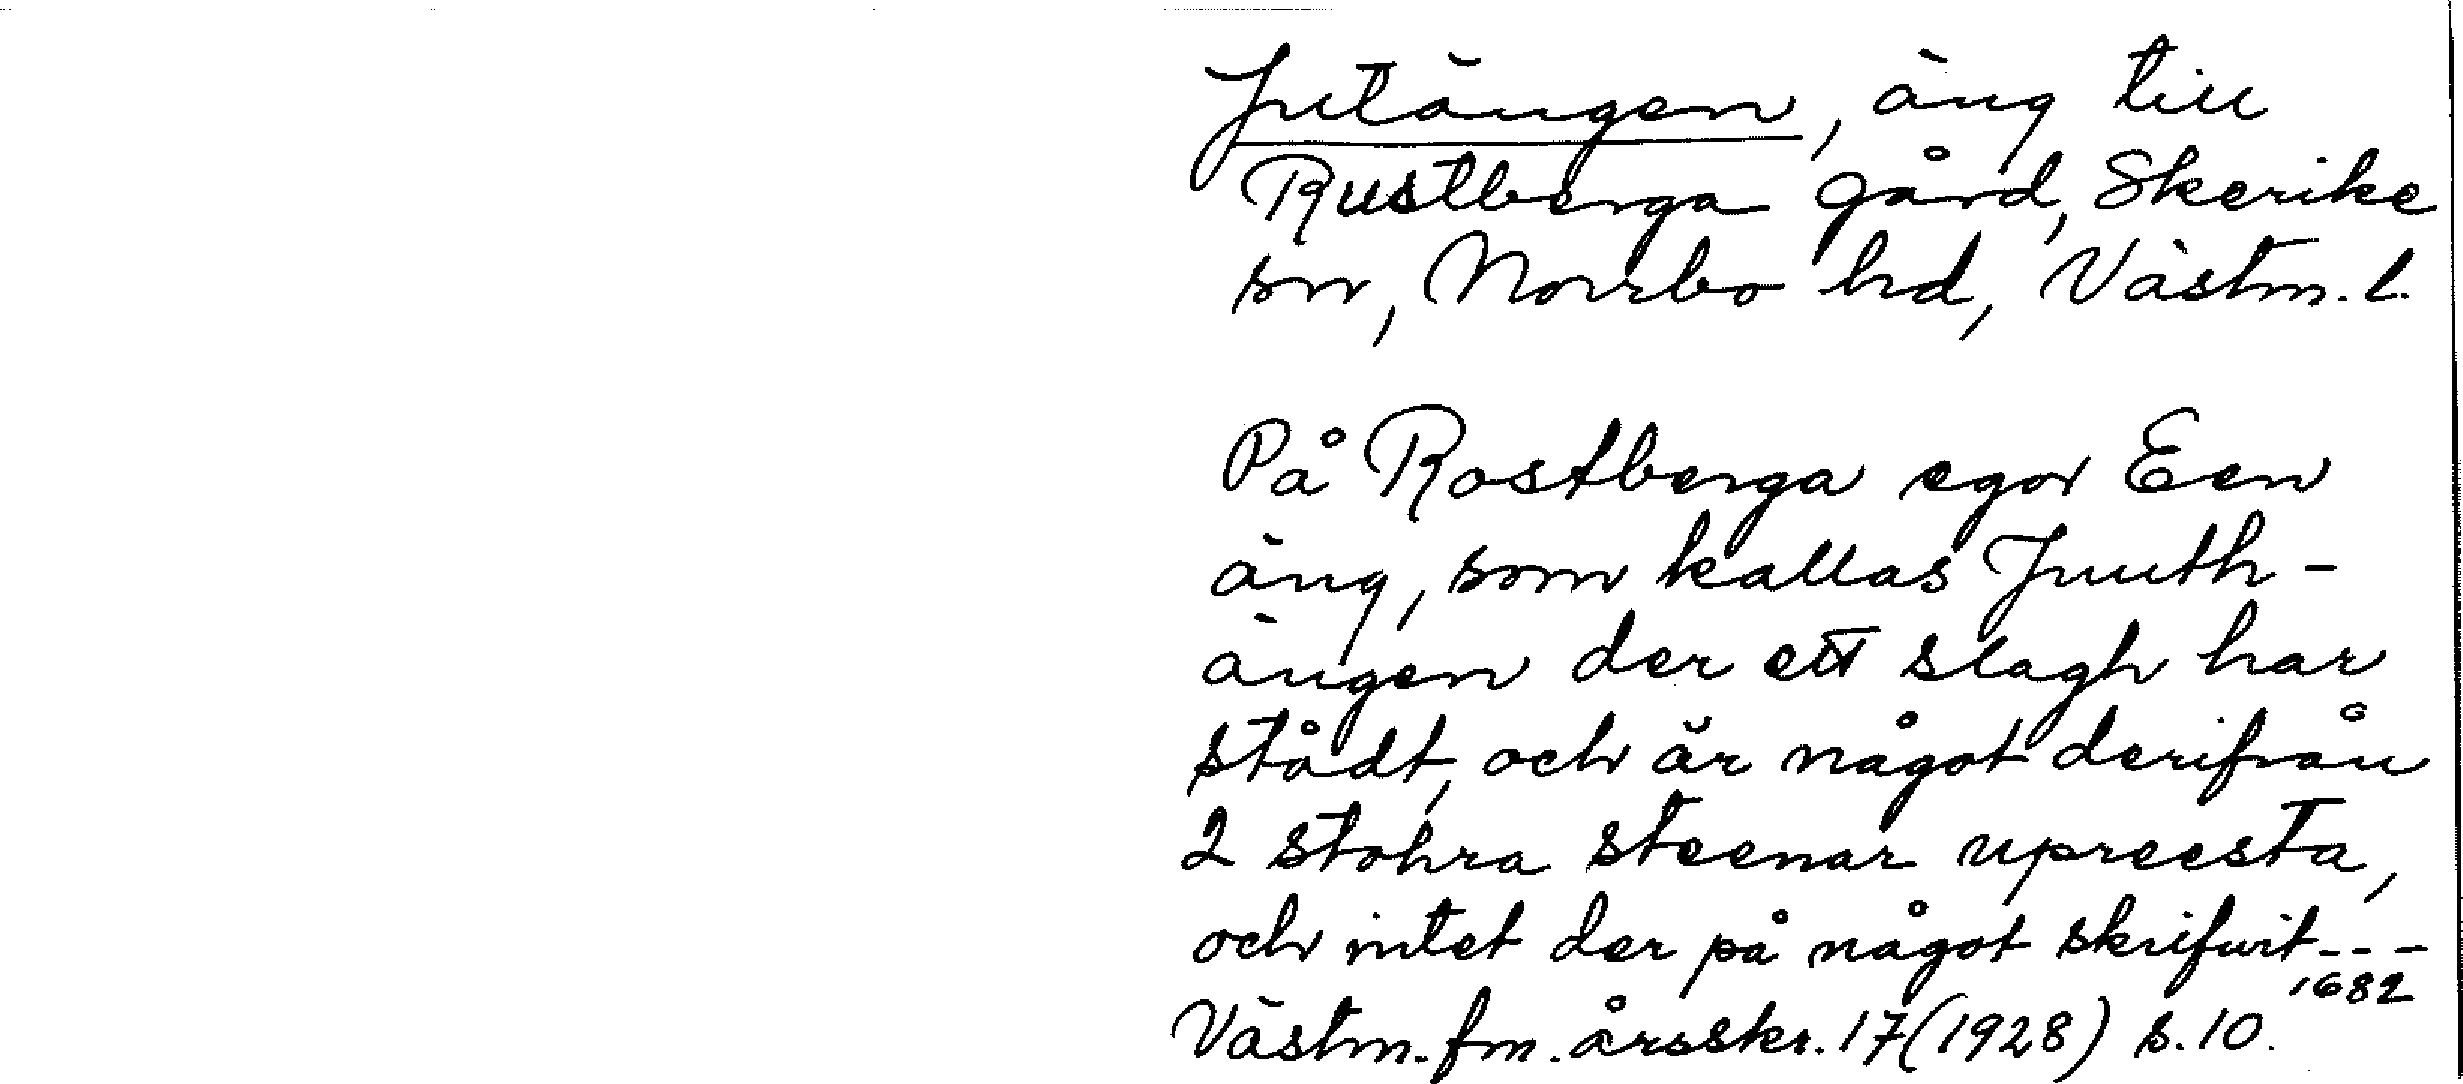 Jutängen, äng till
Rustberga gård, Skerike
sn, Norrbo hd, Västm. l.
På Rostberga egor Een
äng, som kallas Juuth-
ängen der ett slagh har
stådt, och är något derifrån
2 stohra steenar upreesta,
och intet der på något skrifwit---
1682
Västm. fm. årsskr. 17 (1928) s. 10.